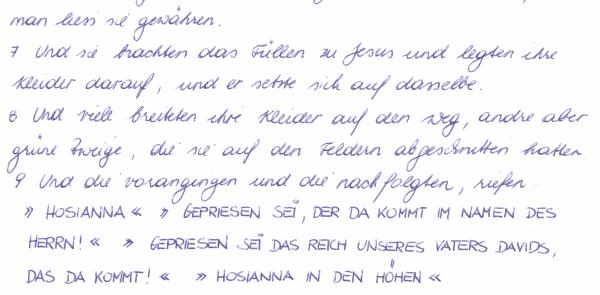 man liess sie gewähren.
7 Und sie brachten das Füllen zu Jesus und legten ihre
Kleider darauf, und er setzte sich auf dasselbe.
8 Und viele breiteten ihre Kleider auf den Weg, andre aber
grüne Zweige, die sie auf den Feldern abgeschnitten hatten
9 Und die vorangingen und die nachfolgten, riefen:
» HOSIANNA « » GEPRIESEN SEI, DER DA KOMMT IM NAMEN DES
HERRN! « » GEPRIESEN SEI DAS REICH UNSERES VATERS DAVIDS,
DAS DA KOMMT! « » HOSIANNA IN DEN HÖHEN «